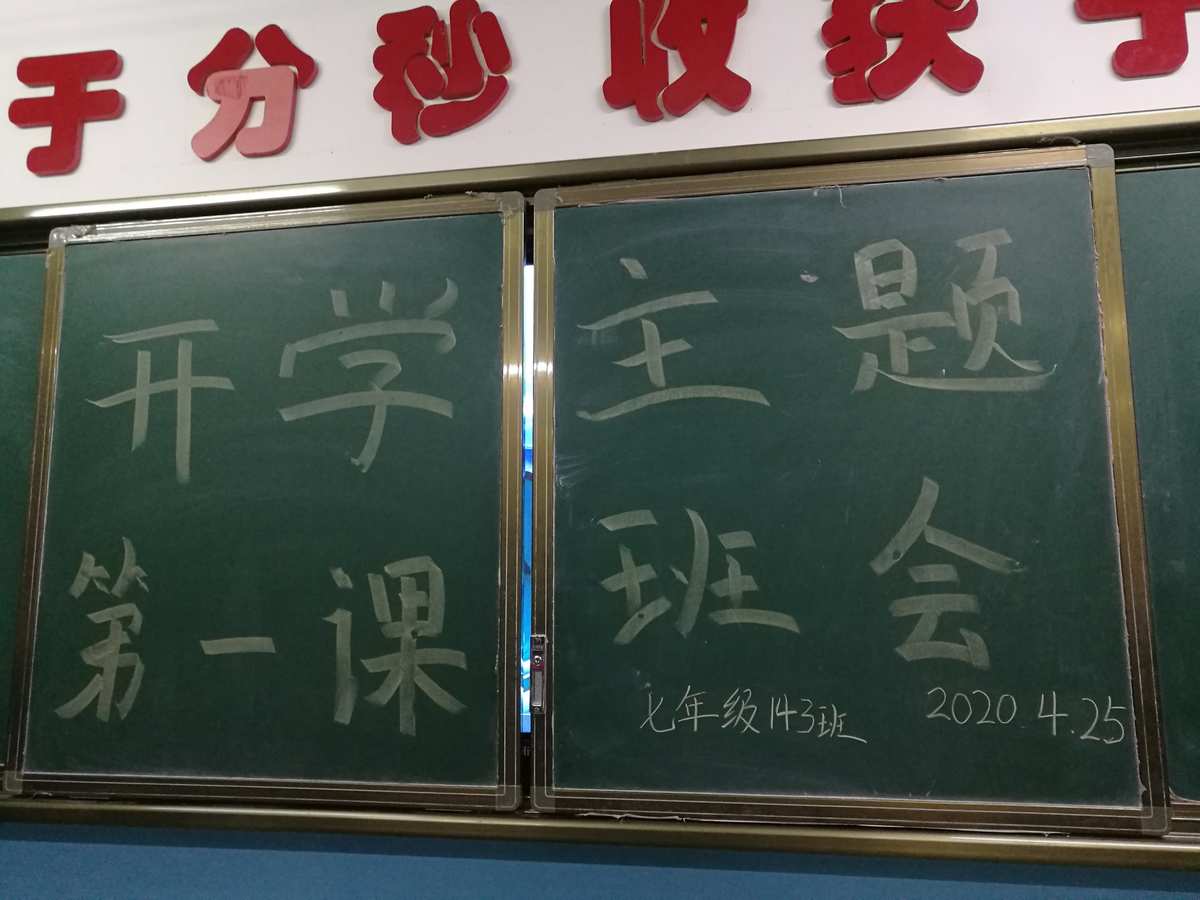 于分秒收获于
开学
第一课
主题
班会
七年级143班 2020.4.25